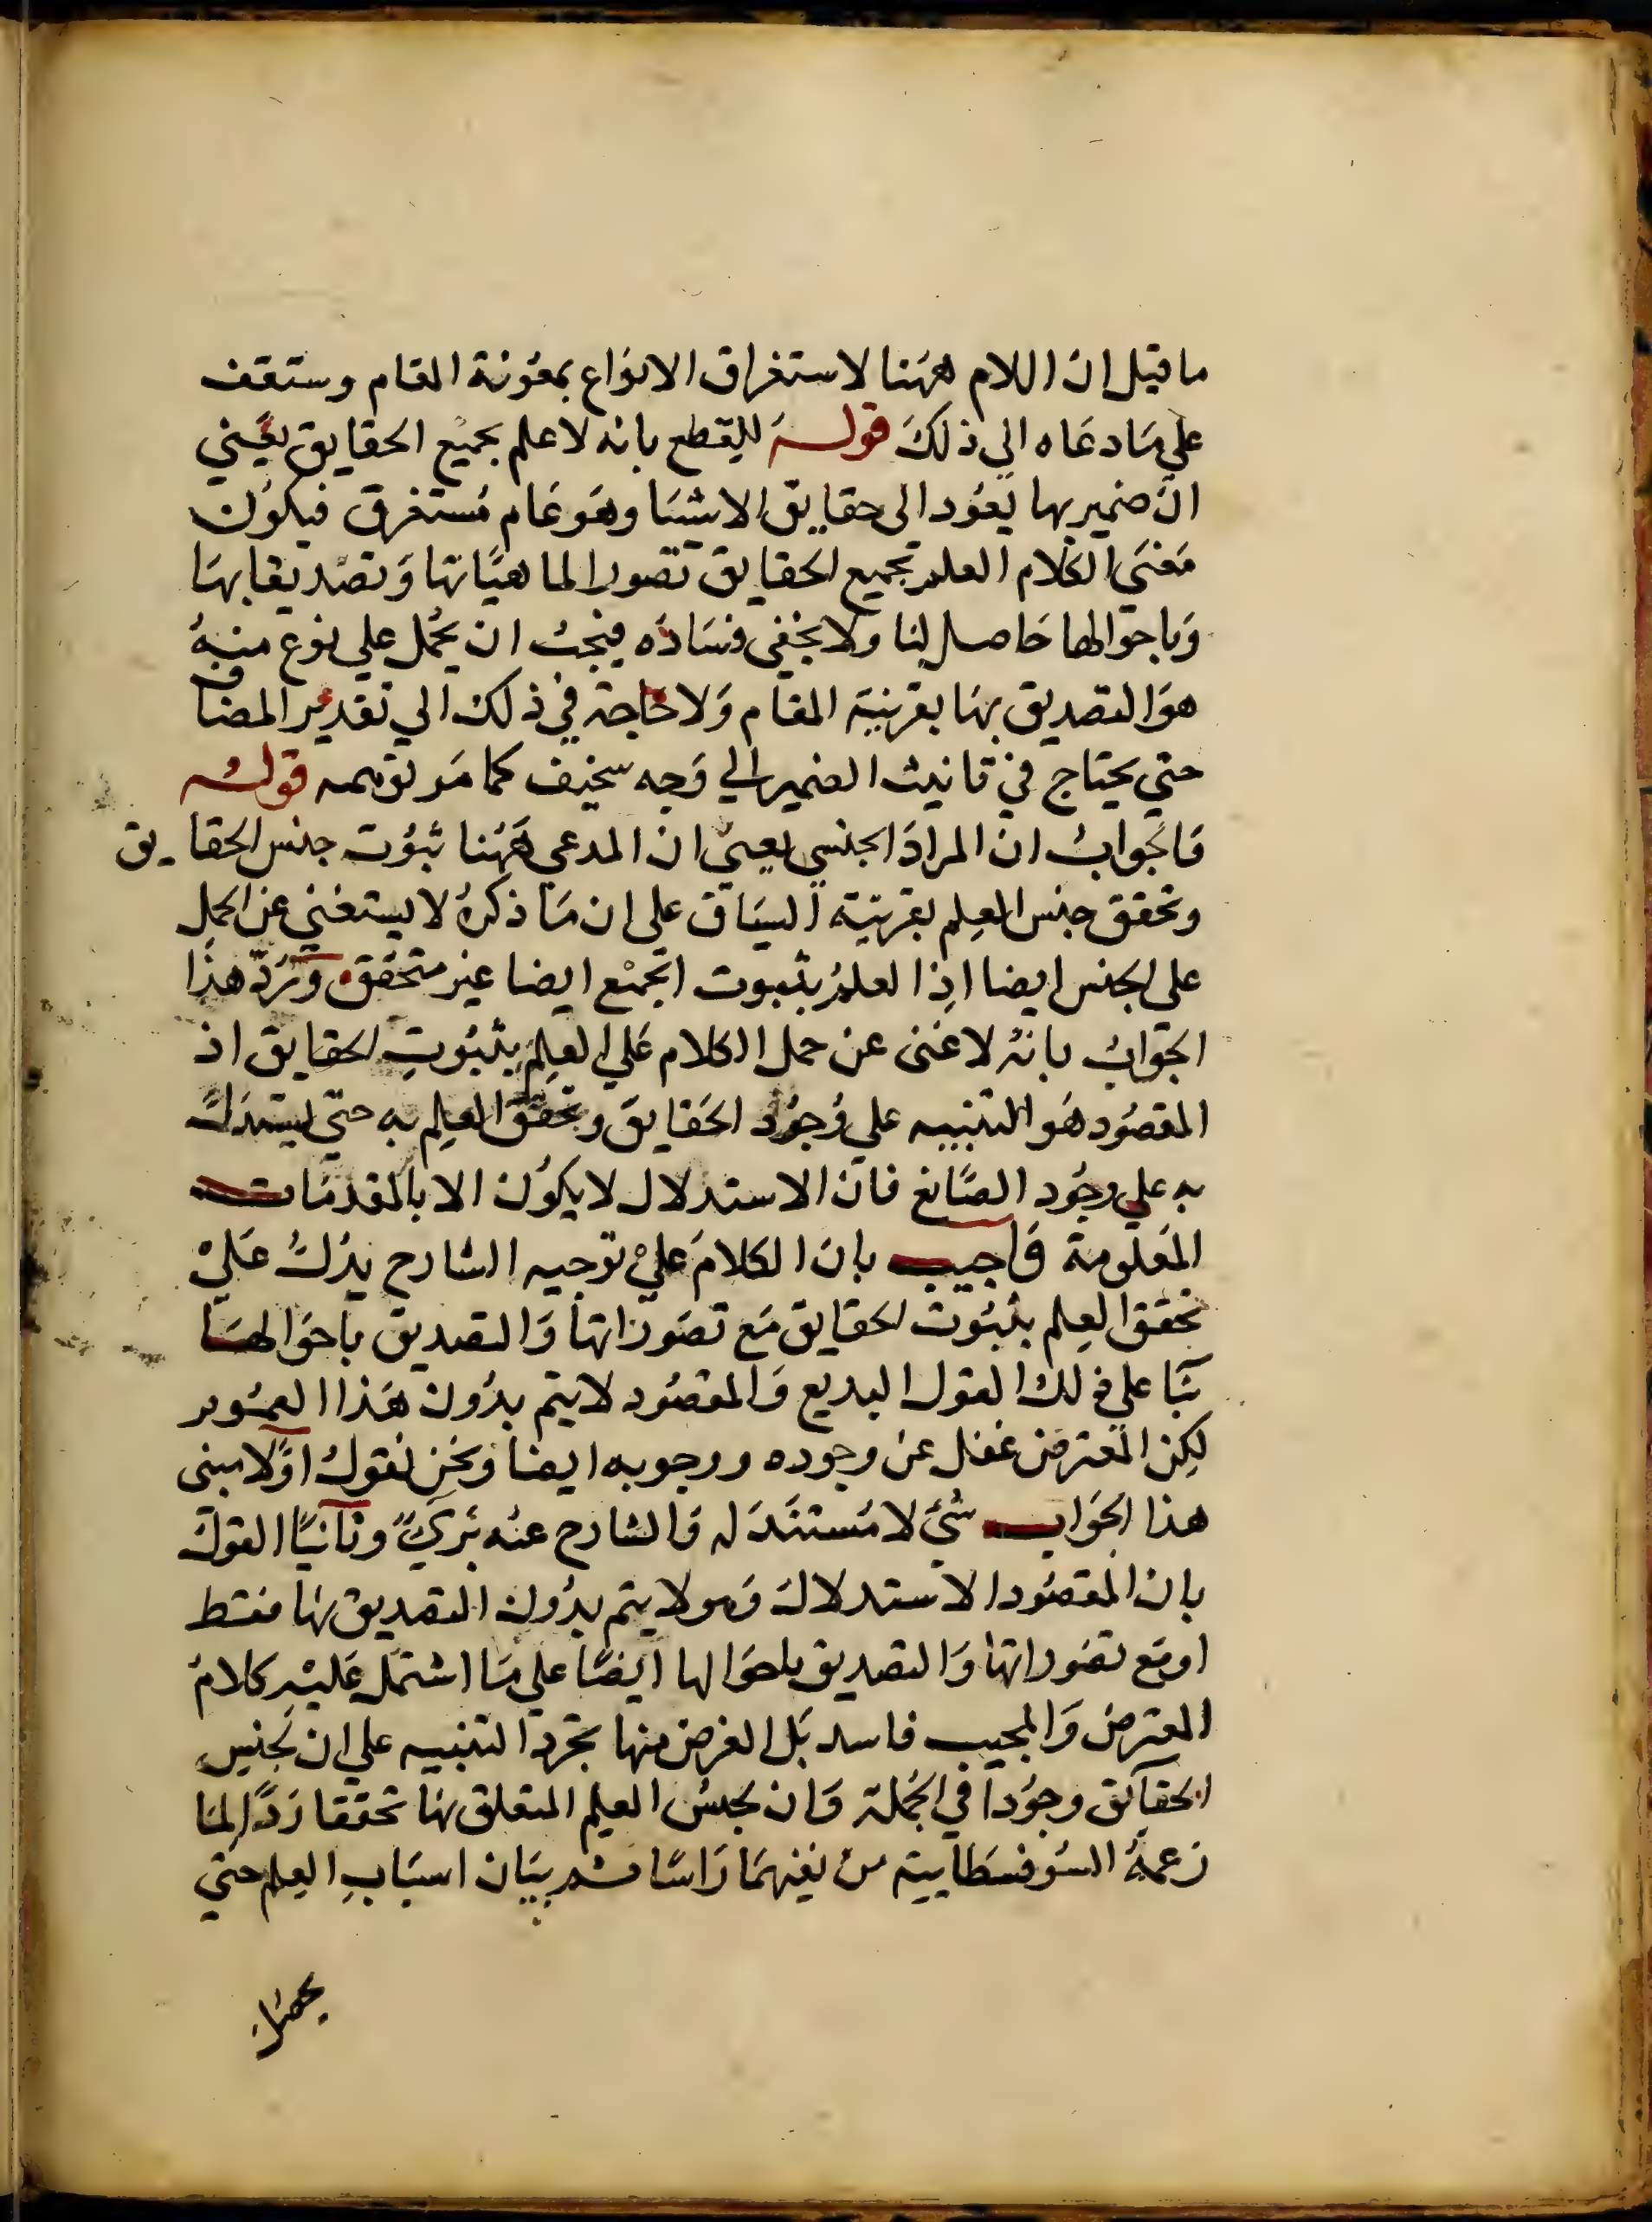 ما قيل ان اللام ههنا لاستغراق الانواع بمعونة المقام وستقف
علي مادعاه الي ذلك قوله للقطع بانه لا علم بجميع الحقايق يعني
ان ضمير بها يعود الى حقايق الاشيا وهو عام مستغرق فيكون
معنى الكلام العلم بجميع الحقايق تصورا لماهياتها وتصديقا بها
وباحوالها حاصل لنا ولا يخفى فساده فيجب ان يحمل علي نوع منه
هو التصديق بها بقرينة المقام ولا حاجة في ذلك الي تقدير المضاف
حتي يحتاج في تانيث الضمير الي وجه سخيف كما مر توهمه قوله
فالجواب ان المراد الجنس يعني ان المدعي ههنا ثبوت جنس الحقايق
وتحقق جنس العلم بقرينة السياق على ان ما ذكره لا يستغني عن الحمل
على الجنس ايضا اذ العلم بثبوت الجميع ايضا غير متحقق ورد هذا
الجواب بانه لا غنى عن حمل الكلام علي العلم بثبوت الحقايق اذ
المقصود هو التنبيه علي وجود الحقايق وتحقق العلم به حتي يستدل
به علي وجود الصانع فان الاستدلال لا يكون الا بالمقدمات
المعلومة فاجيب بان الكلام علي توجيه الشارح يدل علي
تحقق العلم بثبوت الحقايق مع تصوراتها والتصديق باحوالها
بنا علي ذلك القول البديع والمقصود لا يتم بدون هذا
لكن المعترض غفل عن وجوده ووجوبه ايضا ونحن نقول اولا مبنى
هذا الجواب شي لا مستند له والشارح عنه بري وثانيا القول
بان المقصود الاستدلال وهو لا يتم بدون التصديق بها فقط
او مع تصوراتها والتصديق باحوالها ايضا علي ما اشتمل عليه كلام
المعترض والمجيب فاسد بل الغرض منها مجرد التنبيه علي ان لجنس
الحقايق وجودا في الجملة وان لجنس العلم المتعلق بها تحققا ردا لما
زعمه السوفسطاييه من نفيهما راسا ثم بيان اسباب العلم حتي
يحصل